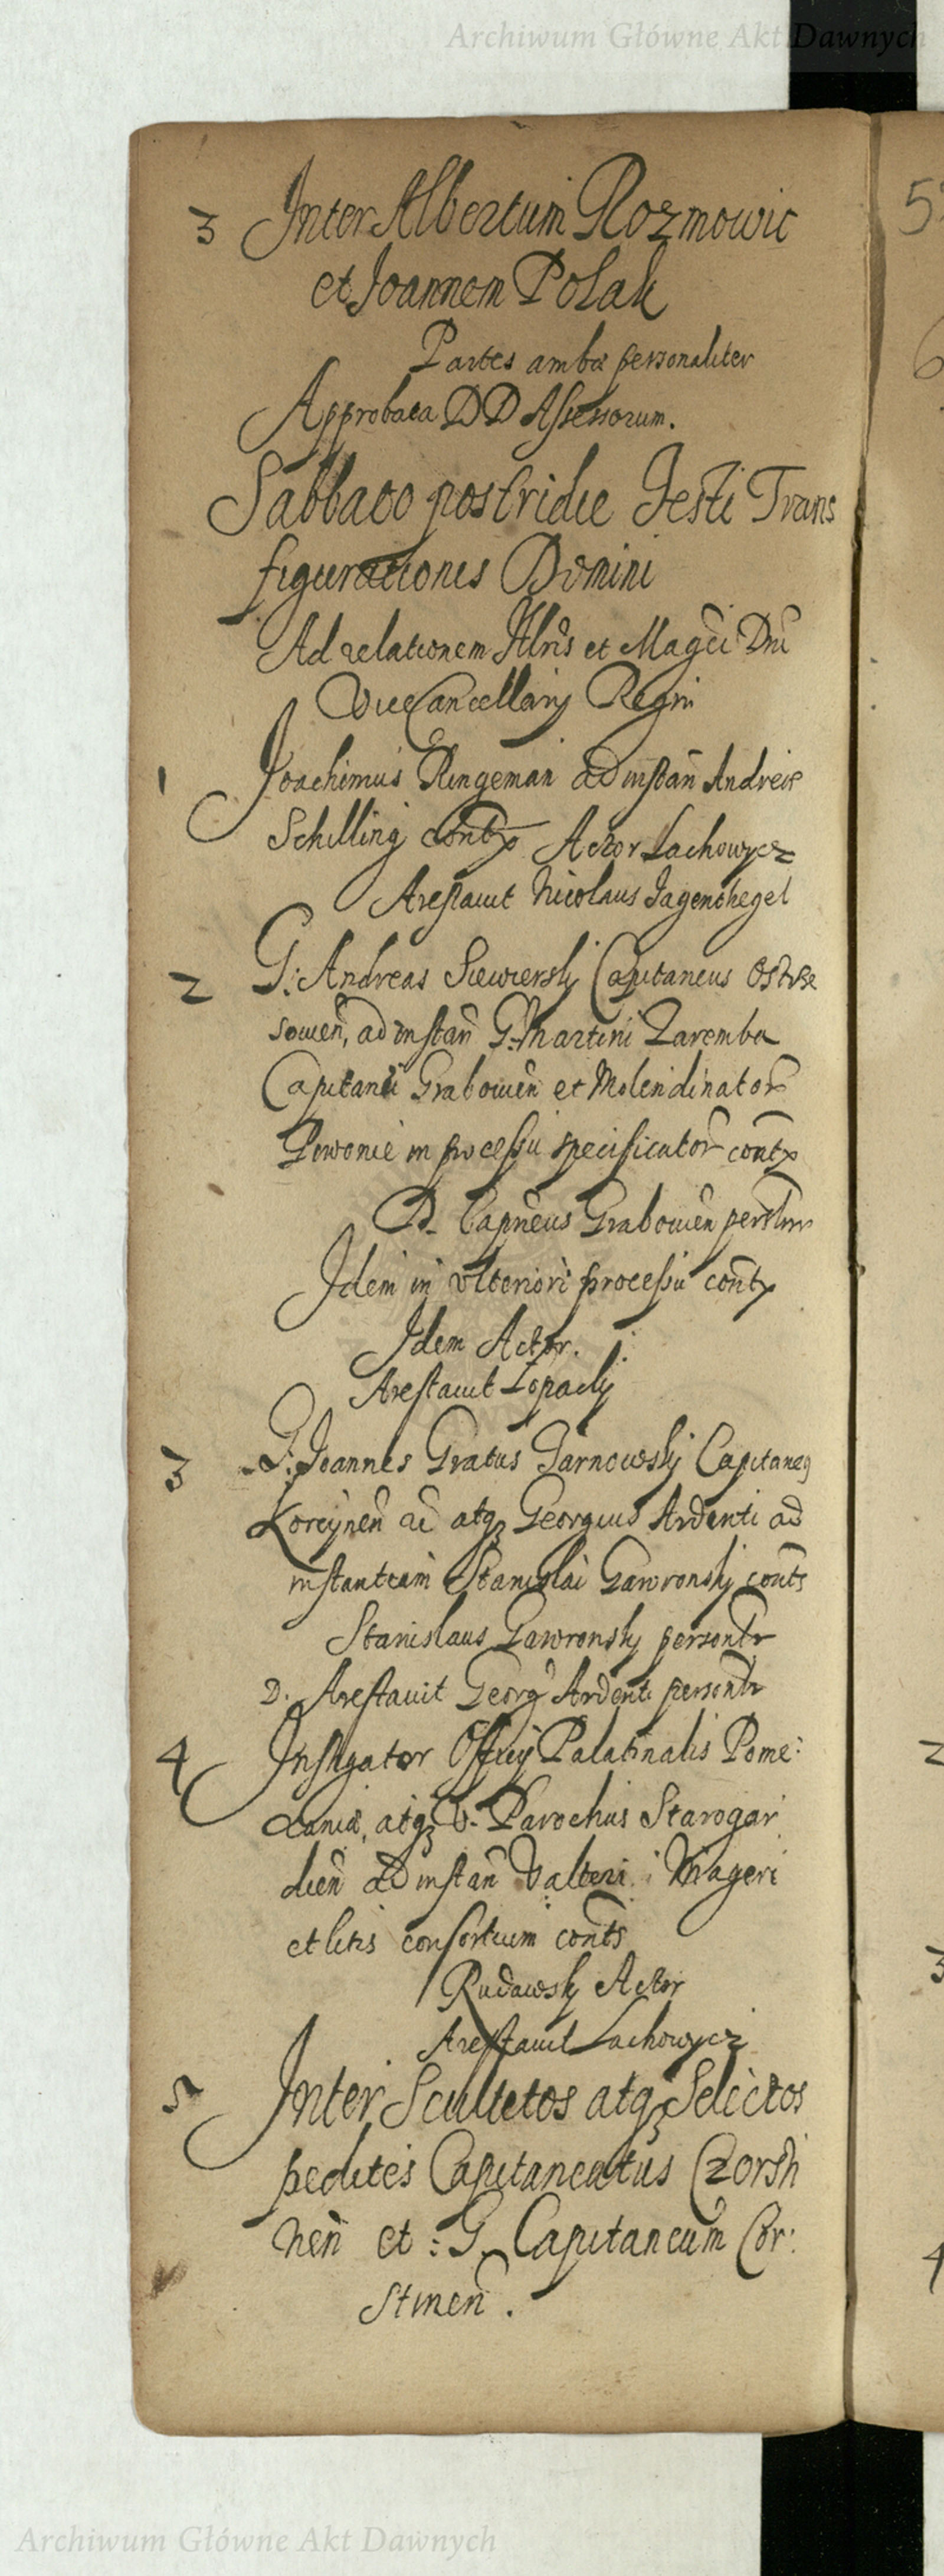 Archiwum Główne Akt Dawnych
3 Inter Albertum Rozmowic
et Joannem Polak
Partes ambæ personaliter
Approbata DD Assessorum.
Sabbato postridie Festi Trans
figurationis Domini
Ad relationem Illris et Magci Dni
ViceCancellarij Regni
1 Joachimus Ringeman ad instan Andreæ
Schilling contx Actor Lachowycz
Arestavit Nicolaus Jagenthegel
2 G: Andreas Siewiersky Capitaneus Ostrze
sowen, ad instan G. Martini Zaremba
Capitanei Grabowien et Molendinator
in processu specificator contx
D. Capneus Grabowien persler
Idem in ulteriori processu contx
Idem Actor.
Arestavit Lopacky
3 G: Joannes Gratus Tarnowsky Capitane9
ac atq3 Georgius Ardenti ad
instantiam Stanislai Gawronsky conts
Stanislaus Gawronsky personlr
D. Arestavit Georg Ardenti personlr
4 Instigator Officij Palatinalis Pome:
raniæ, atq3 V. Parochus Starogar
dien ad instan Valteri Wiageri
et litis consortium conts
Rudawsky Actor
Arestavit Lachowycz
5 Inter Scultetos atq3 Selectos
pedites Capitaneatus Czorsti
nen et: G. Capitaneum Cor:
stinen.
5
6
2
3
4
Archiwum Główne Akt Dawnych